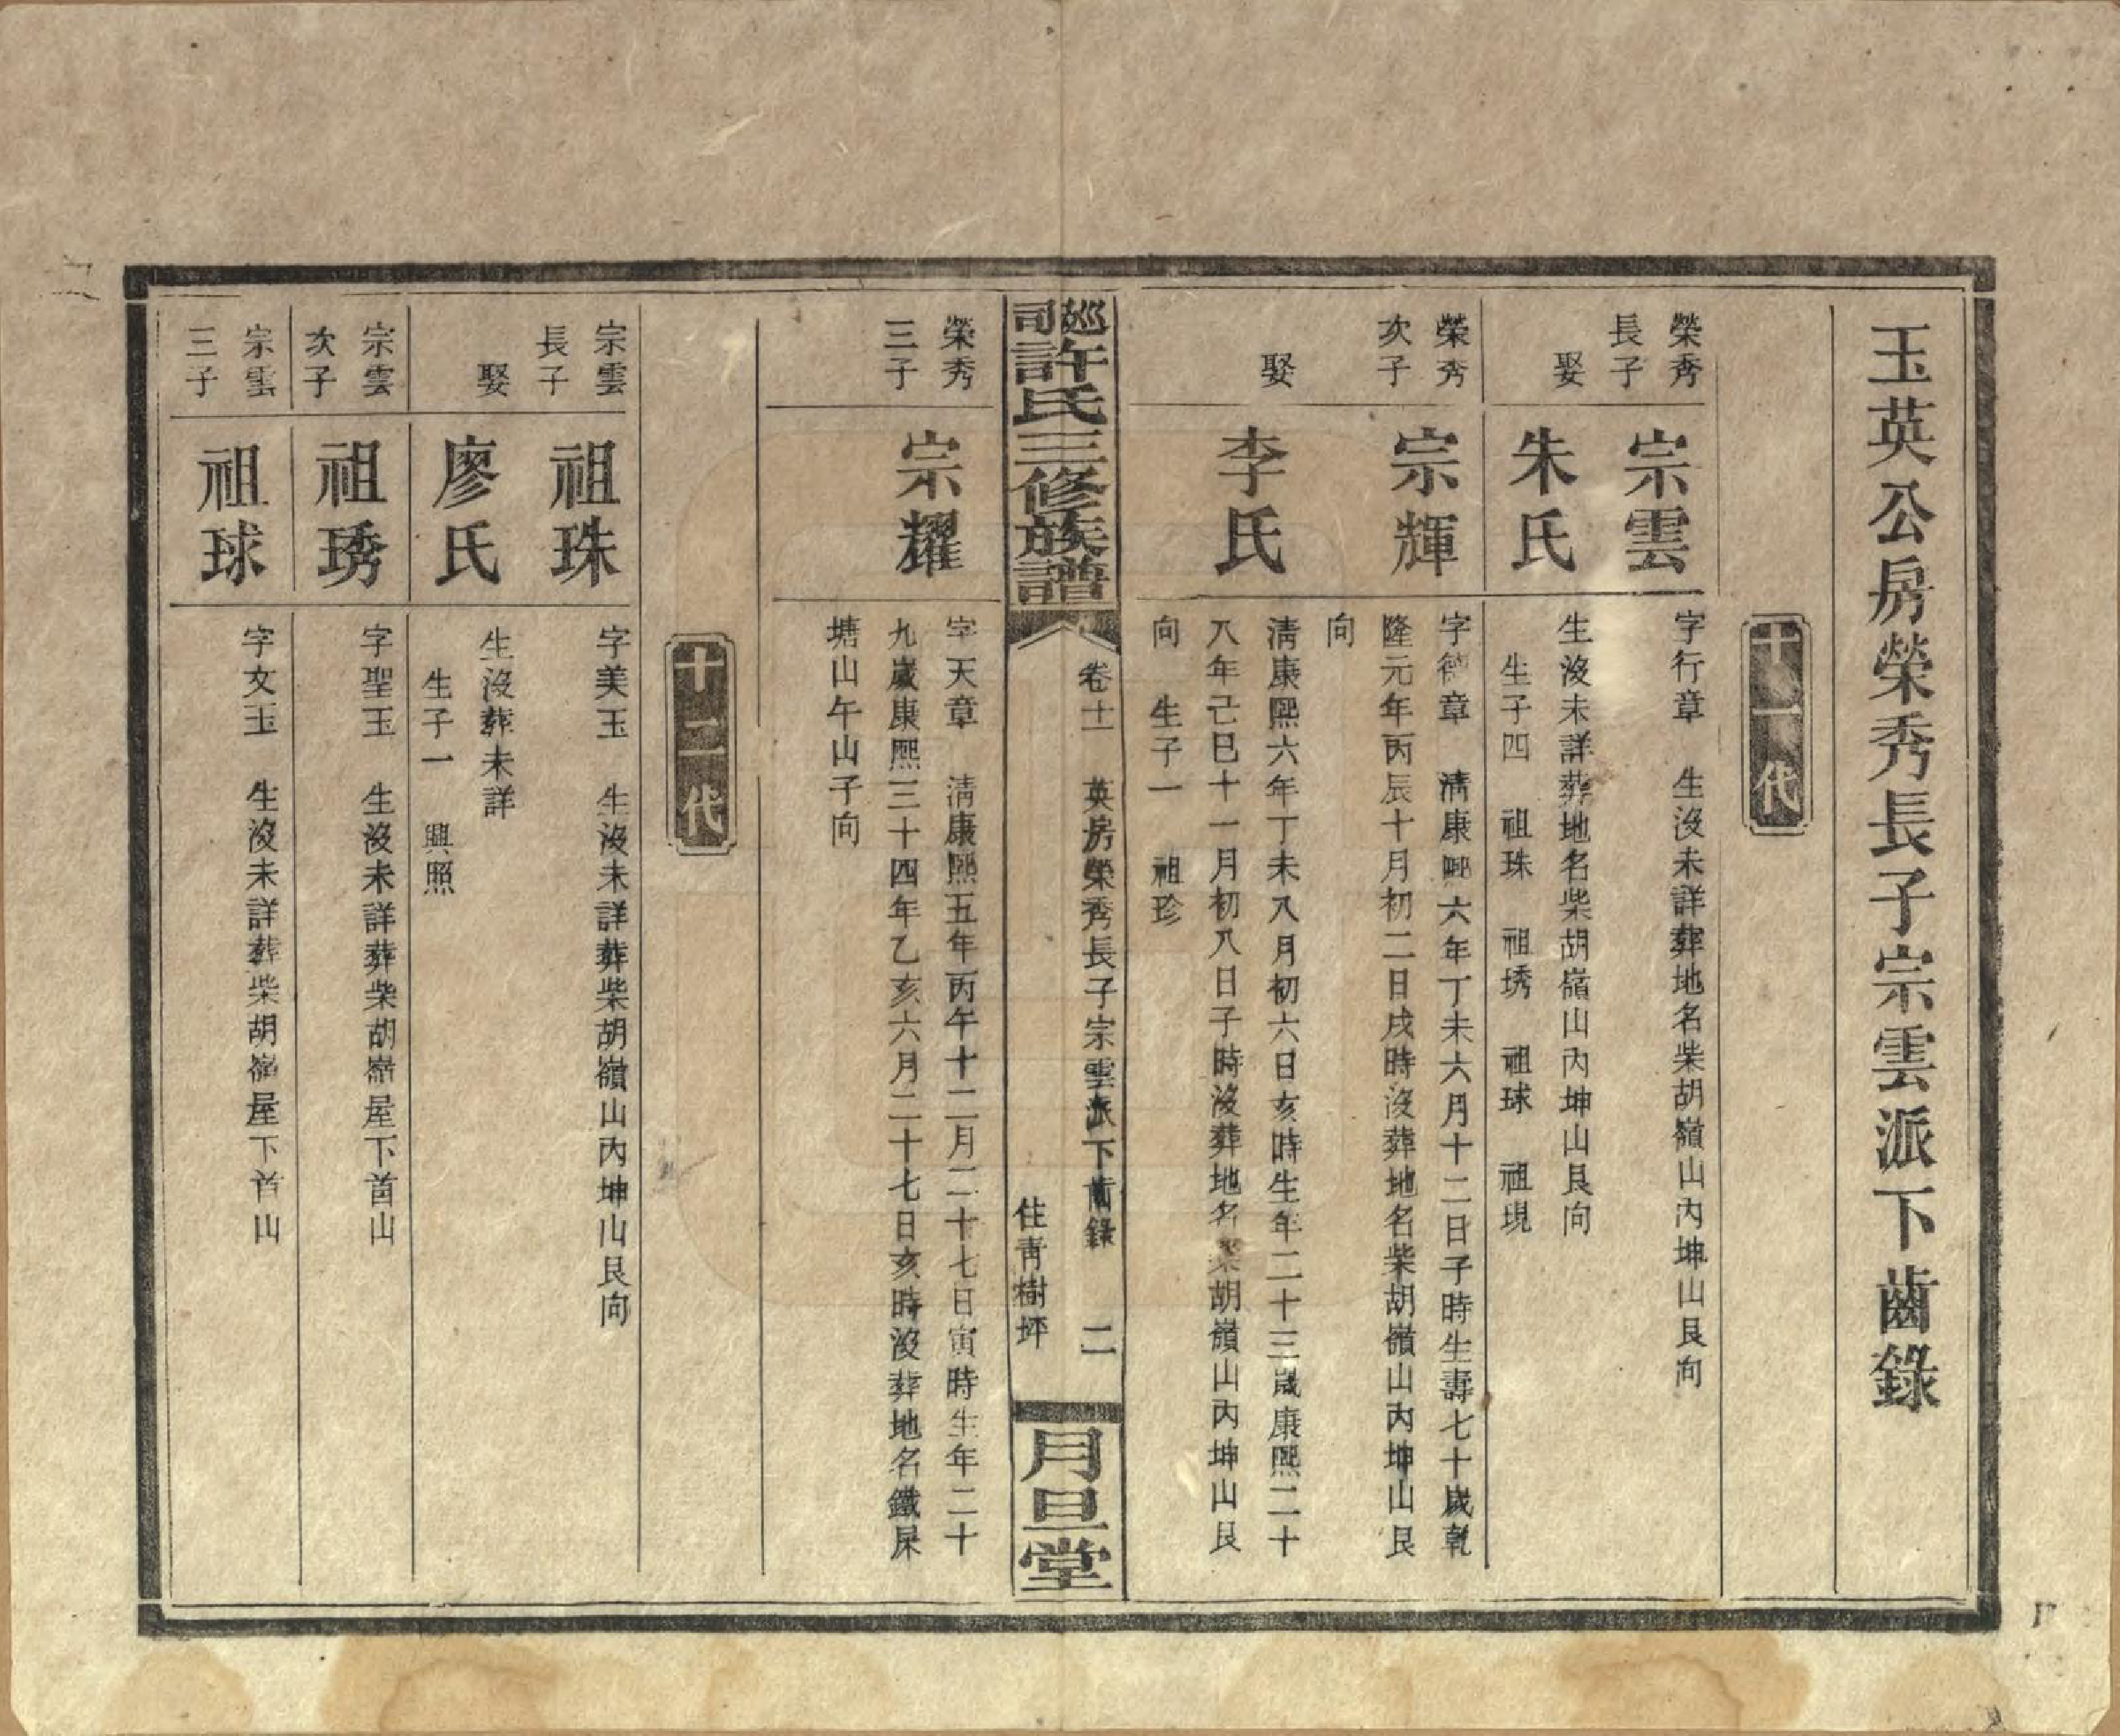 玉英公房榮秀長子宗雲派下齒錄
十一代
榮秀
長子
宗雲
字行章　生沒未詳葬地名柴胡嶺山內坤山艮向
娶
朱氏
生沒未詳葬地名柴胡嶺山內坤山艮向
生子四　祖珠　祖琇　祖球　祖現
榮秀
次子
宗輝
字德章　清康熙六年丁未六月十二日子時生壽七十歲乾
隆元年丙辰十月初二日戌時沒葬地名柴胡嶺山內坤山艮
向
娶
李氏
清康熙六年丁未八月初六日亥時生年二十三歲康熙二十
八年己巳十一月初八日子時沒葬地名柴胡嶺山內坤山艮
向　生子一　祖珍
巡司許氏三修族譜
卷十一　英房榮秀長子宗雲派下齒錄　二
住青樹坪
月旦堂
榮秀
三子
宗耀
字天章　清康熙五年丙午十二月二十七日寅時生年二十
九歲康熙三十四年乙亥六月二十七日亥時沒葬地名鐵屎
塘山午山子向
十二代
宗雲
長子
祖珠
字美玉　生沒未詳葬柴胡嶺山內坤山艮向
娶
廖氏
生沒葬未詳
生子一　興照
宗雲
次子
祖琇
字聖玉　生沒未詳葬柴胡嶺屋下首山
宗雲
三子
祖球
字文玉　生沒未詳葬柴胡嶺屋下首山